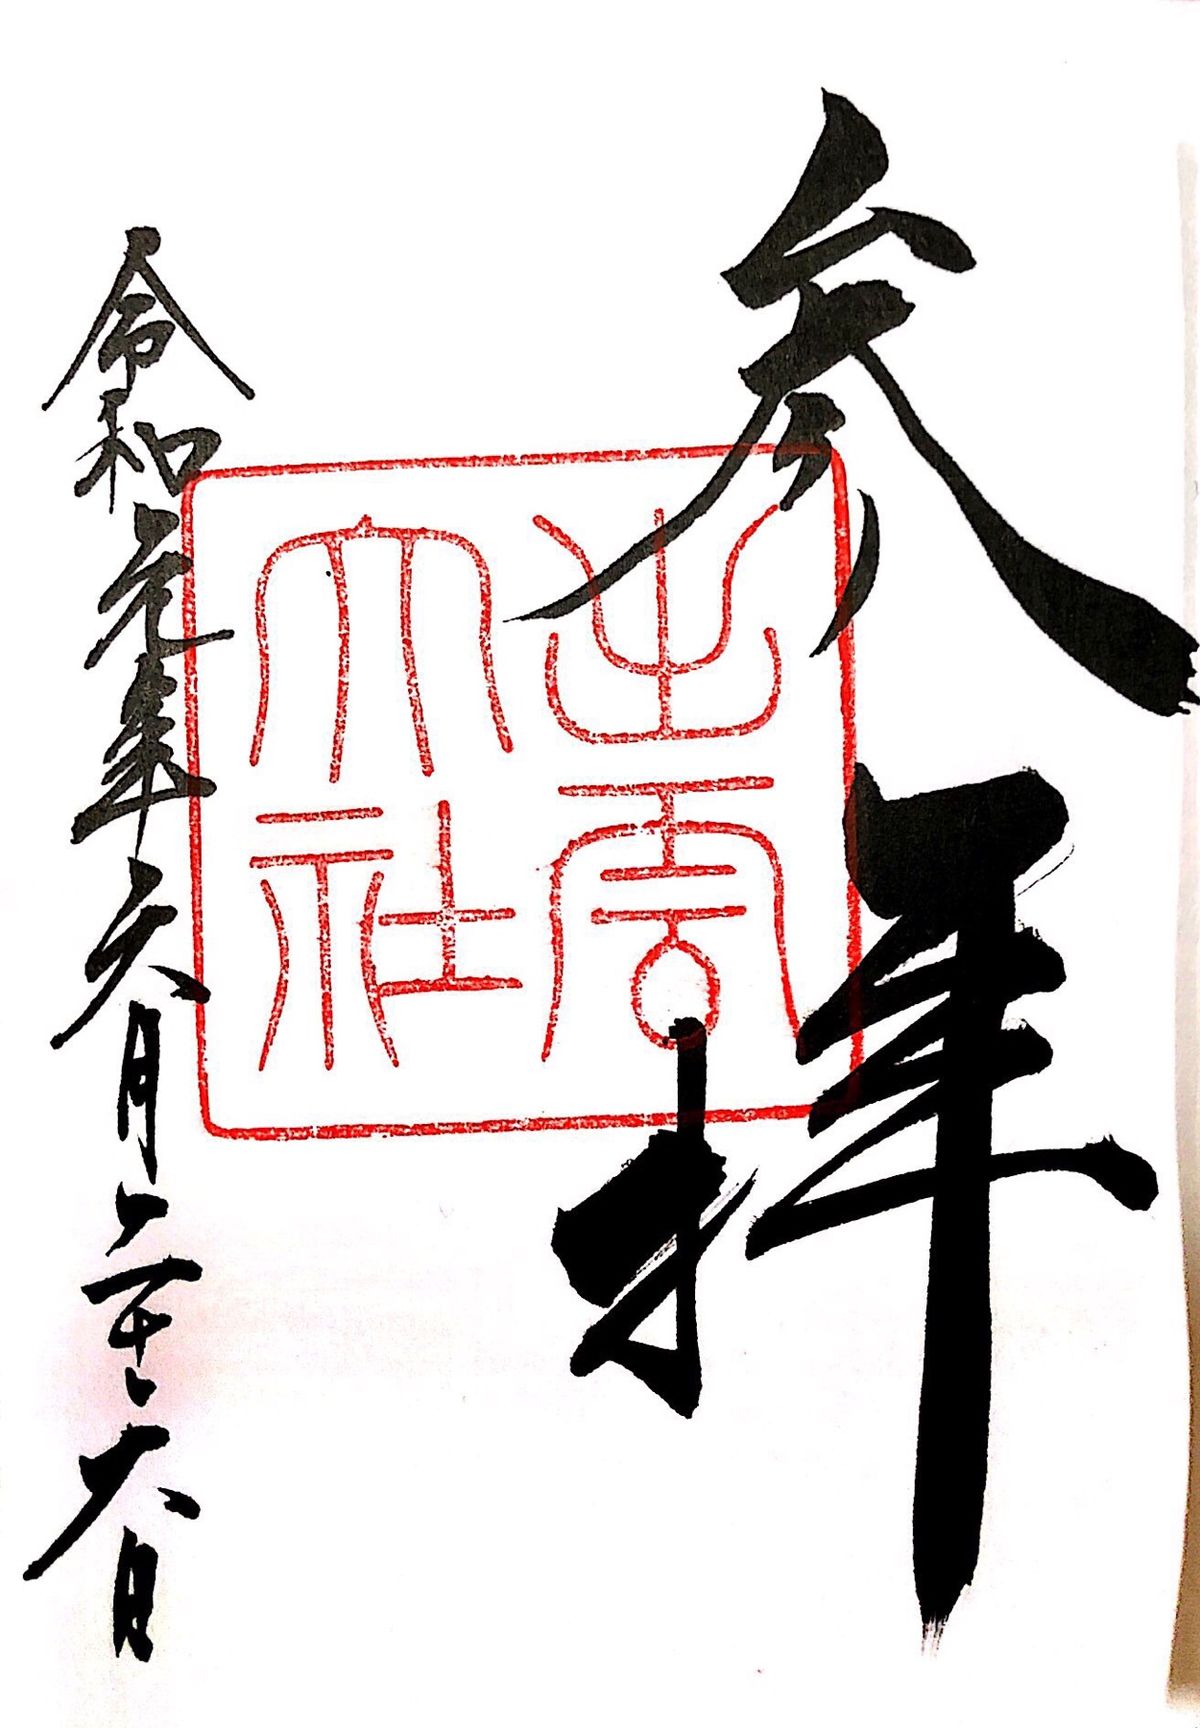 参拝
出雲
大社
令和元年六月二十六日